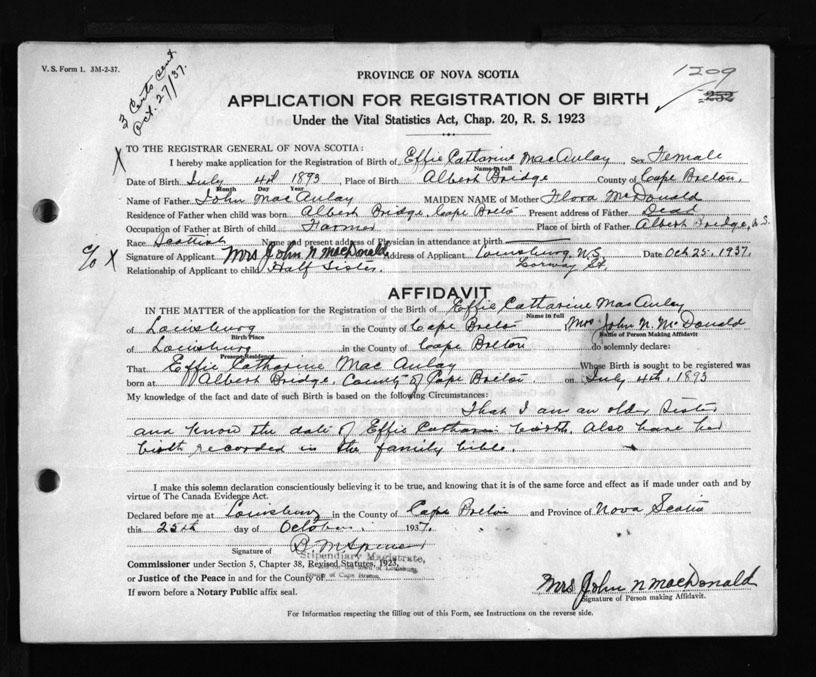 V. S. Form 1. 3M-2-37.
3 Certs sent
Oct. 27/37.
1209
252
PROVINCE OF NOVA SCOTIA
APPLICATION FOR REGISTRATION OF BIRTH
Under the Vital Statistics Act, Chap. 20, R. S. 1923
X TO THE REGISTRAR GENERAL OF NOVA SCOTIA:
I hereby make application for the Registration of Birth of Effie Catharine MacAulay, Sex Female
Name in full
Date of Birth July 4th 1893, Place of Birth Albert Bridge County of Cape Breton,
Month Day Year
Name of Father John MacAulay MAIDEN NAME of Mother Flora McDonald
Residence of Father when child was born Albert Bridge, Cape Breton Present address of Father Dead
Occupation of Father at Birth of child Farmer Place of birth of Father Albert Bridge, N.S.
Race Scottish Name and present address of Physician in attendance at birth
c/o X Signature of Applicant Mrs John N MacDonald Address of Applicant Louisburg, N.S. Date Oct 25, 1937.
Relationship of Applicant to child Half Sister. St.
AFFIDAVIT
IN THE MATTER of the application for the Registration of the Birth of Effie Catharine MacAulay
Name in full
of Louisburg in the County of Cape Breton, Mrs John N. McDonald
Birth Place Name of Person Making Affidavit
of Louisburg in the County of Cape Breton do solemnly declare:
Present Residence
That Effie Catharine Mac Aulay Whose Birth is sought to be registered was
born at Albert Bridge, County of Cape Breton. on July 4th, 1893
My knowledge of the fact and date of such Birth is based on the following Circumstances:
That I am an older sister
and know the date of Effie Catharine birth. Also have her
birth recorded in the family bible.
I make this solemn declaration conscientiously believing it to be true, and knowing that it is of the same force and effect as if made under oath and by
virtue of The Canada Evidence Act.
Declared before me at Louisburg in the County of Cape Breton and Province of Nova Scotia
this 25th day of October 1937.
Signature of
Stipendiary Magistrate,
Commissioner under Section 5, Chapter 38, Revised Statutes, 1923,
or Justice of the Peace in and for the County of
If sworn before a Notary Public affix seal.
Mrs John N MacDonald
Signature of Person making Affidavit.
For Information respecting the filling out of this Form, see Instructions on the reverse side.